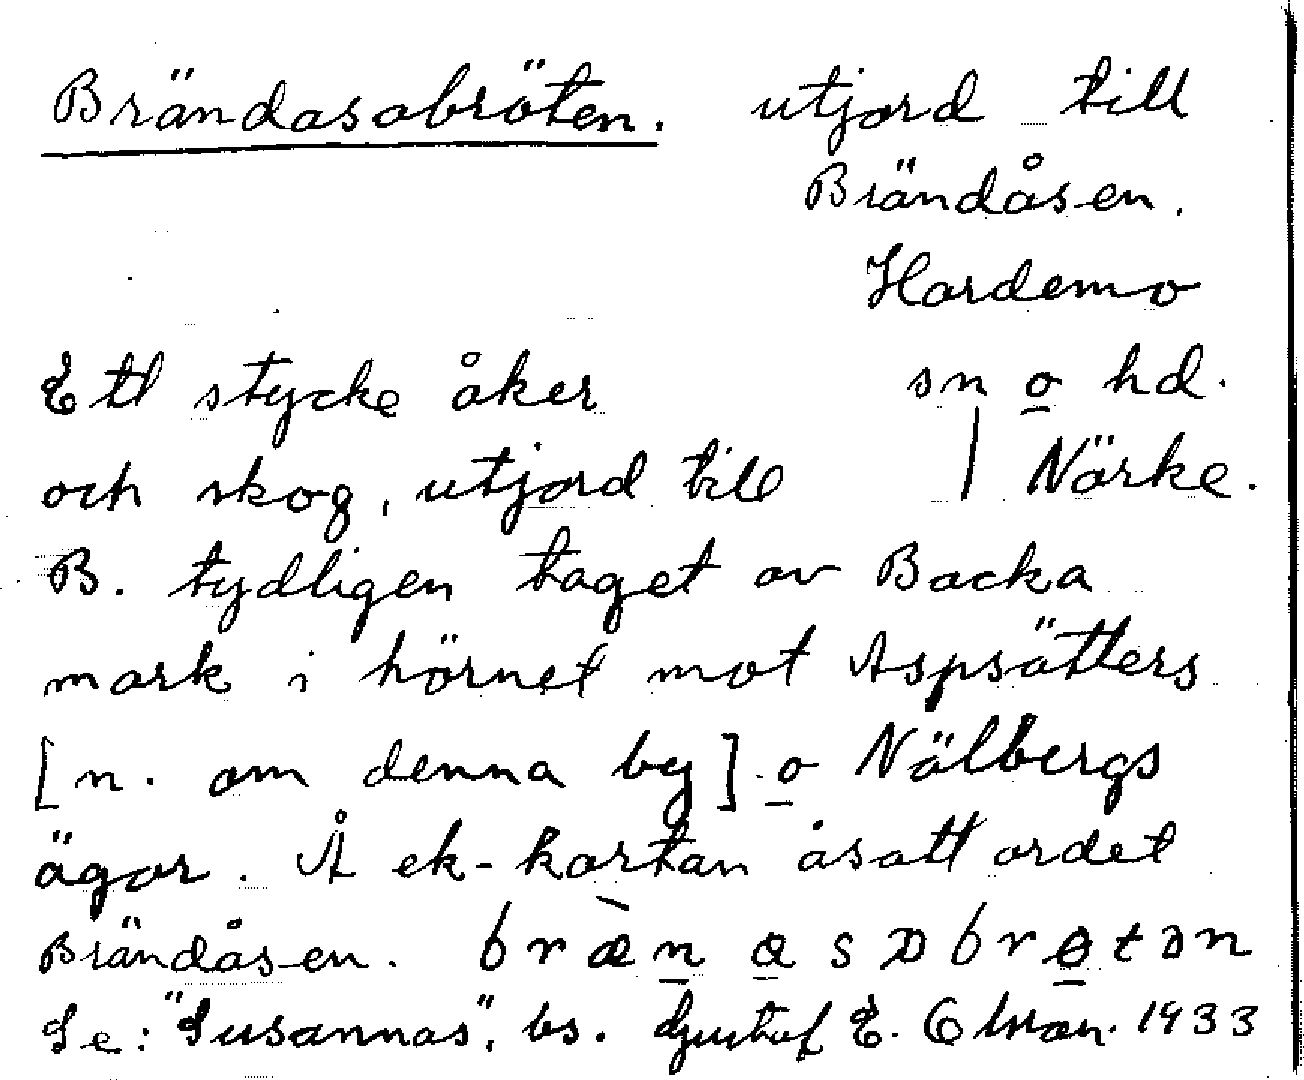 Brändasabröten. utjord till
Brändåsen.
Hardemo
Ett stycke åker sn o hd.
och skog, utjord till | Närke.
B. tydligen taget av Backa
mark i hörnet mot Aspsätters
[n. om denna by] o Nälbergs
ägor. Å ek-kartan åsatt ordet
Brändåsen.
Se: "Susannas", bs. Gustaf E. 1933